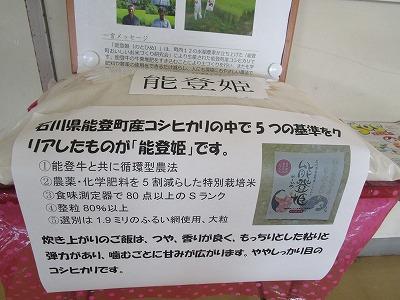 一言メッセージ
能登姫
石川県能登町産コシヒカリの中で5つの基準をク
リアしたものが「能登姫」です。
①能登牛と共に循環型農法
②農薬・化学肥料を5割減らした特別栽培米
③食味測定器で80点以上のSランク
④整粒80%以上
⑤選別は1.9ミリのふるい網使用、大粒
炊き上がりのご飯は、つや、香りが良く、もっちりとした粘りと
弾力があり、噛むごとに甘みが広がります。ややしっかり目の
コシヒカリです。
能登姫